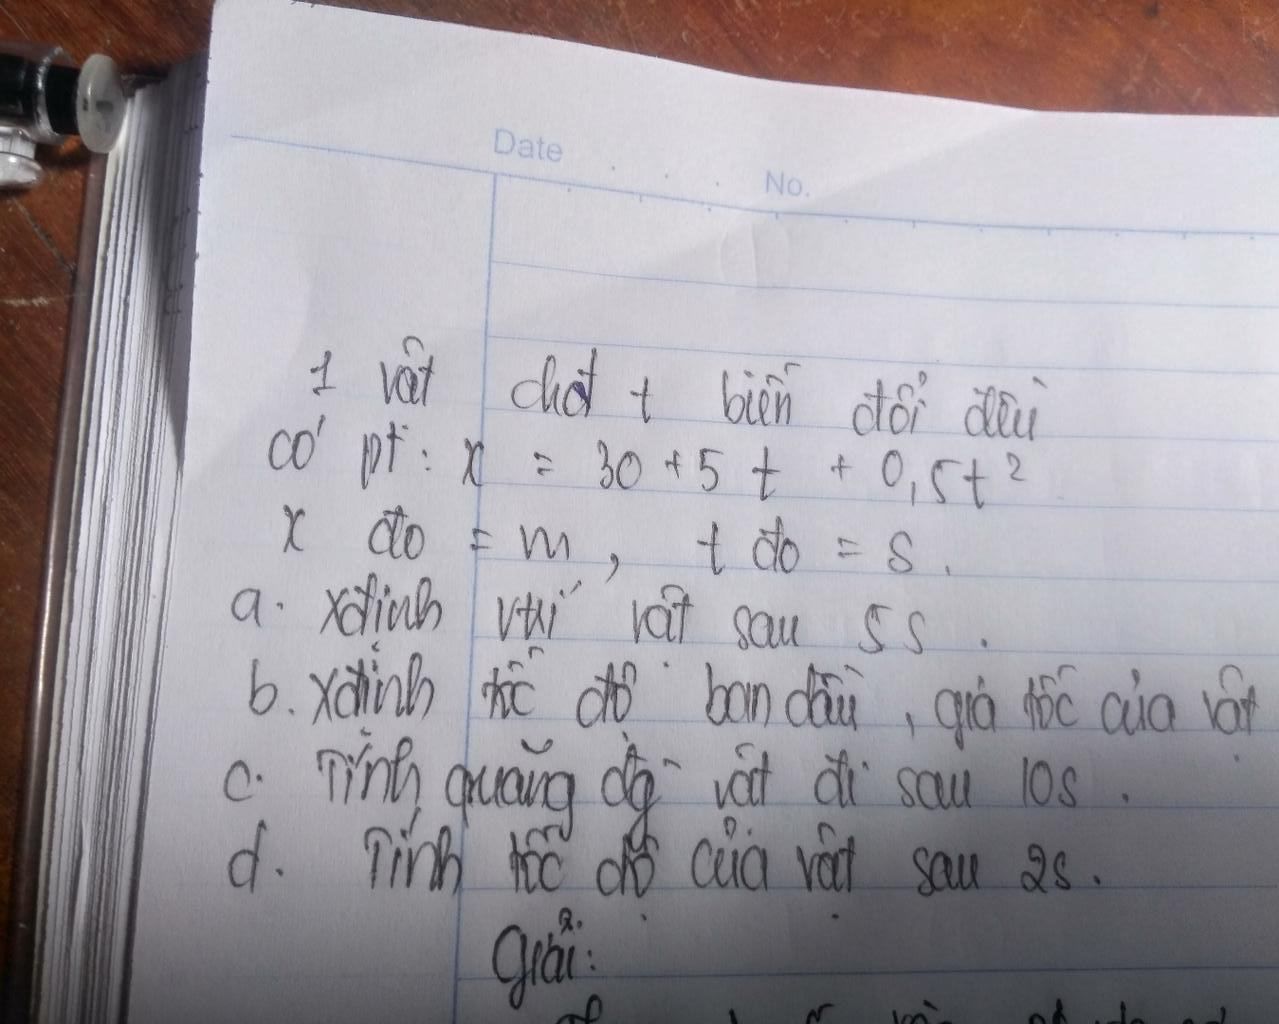 Date
No.
1 vật chđ t biến đổi đều
có pt: x = 30 + 5t + 0,5t²
x đo = m, t đo = s.
a. xđịnh vtrí vật sau 5s.
b. xđịnh tốc độ ban đầu, gia tốc của vật
c. Tính quãng đg vật đi sau 10s.
d. Tính tốc độ của vật sau 2s.
Giải: